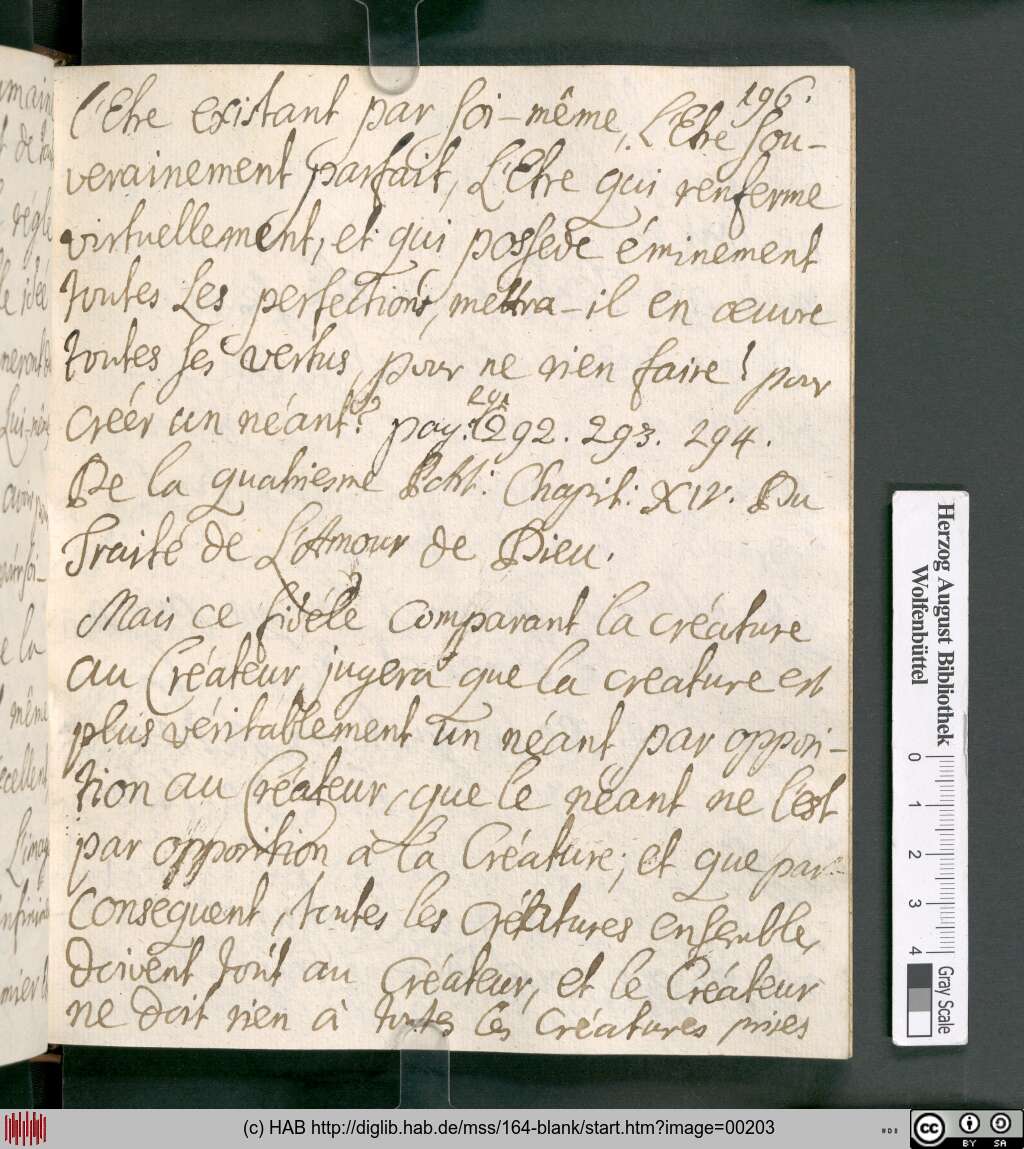 196.
l'Etre existant par soi-même, L'Etre sou-
verainement parfait, L'Etre qui renferme
virtuellement, et qui possede éminement
toutes Les perfections, mettra-il en œuvre
toutes ses vertus, pour ne rien faire! pour
créér un néant? pag. 291 292. 293. 294.
De la quatriesme Part: Chapit: XIV. Du
Traité de L'Amour de Dieu.
Mais ce fidéle comparant la créature
au Créateur, jugera que la creature est
plus véritablement un néant par opposi-
tion au Créateur, que le néant ne l'est
par opposition à la Créature; et que par-
consequent, toutes les Créatures ensemble,
doivent tout au Créateur, et le Créateur
ne doit rien à toutes les créatures prises
Herzog August Bibliothek
Wolfenbüttel
0 1 2 3 4
Gray Scale
(c) HAB http://diglib.hab.de/mss/164-blank/start.htm?image=00203
cc BY SA